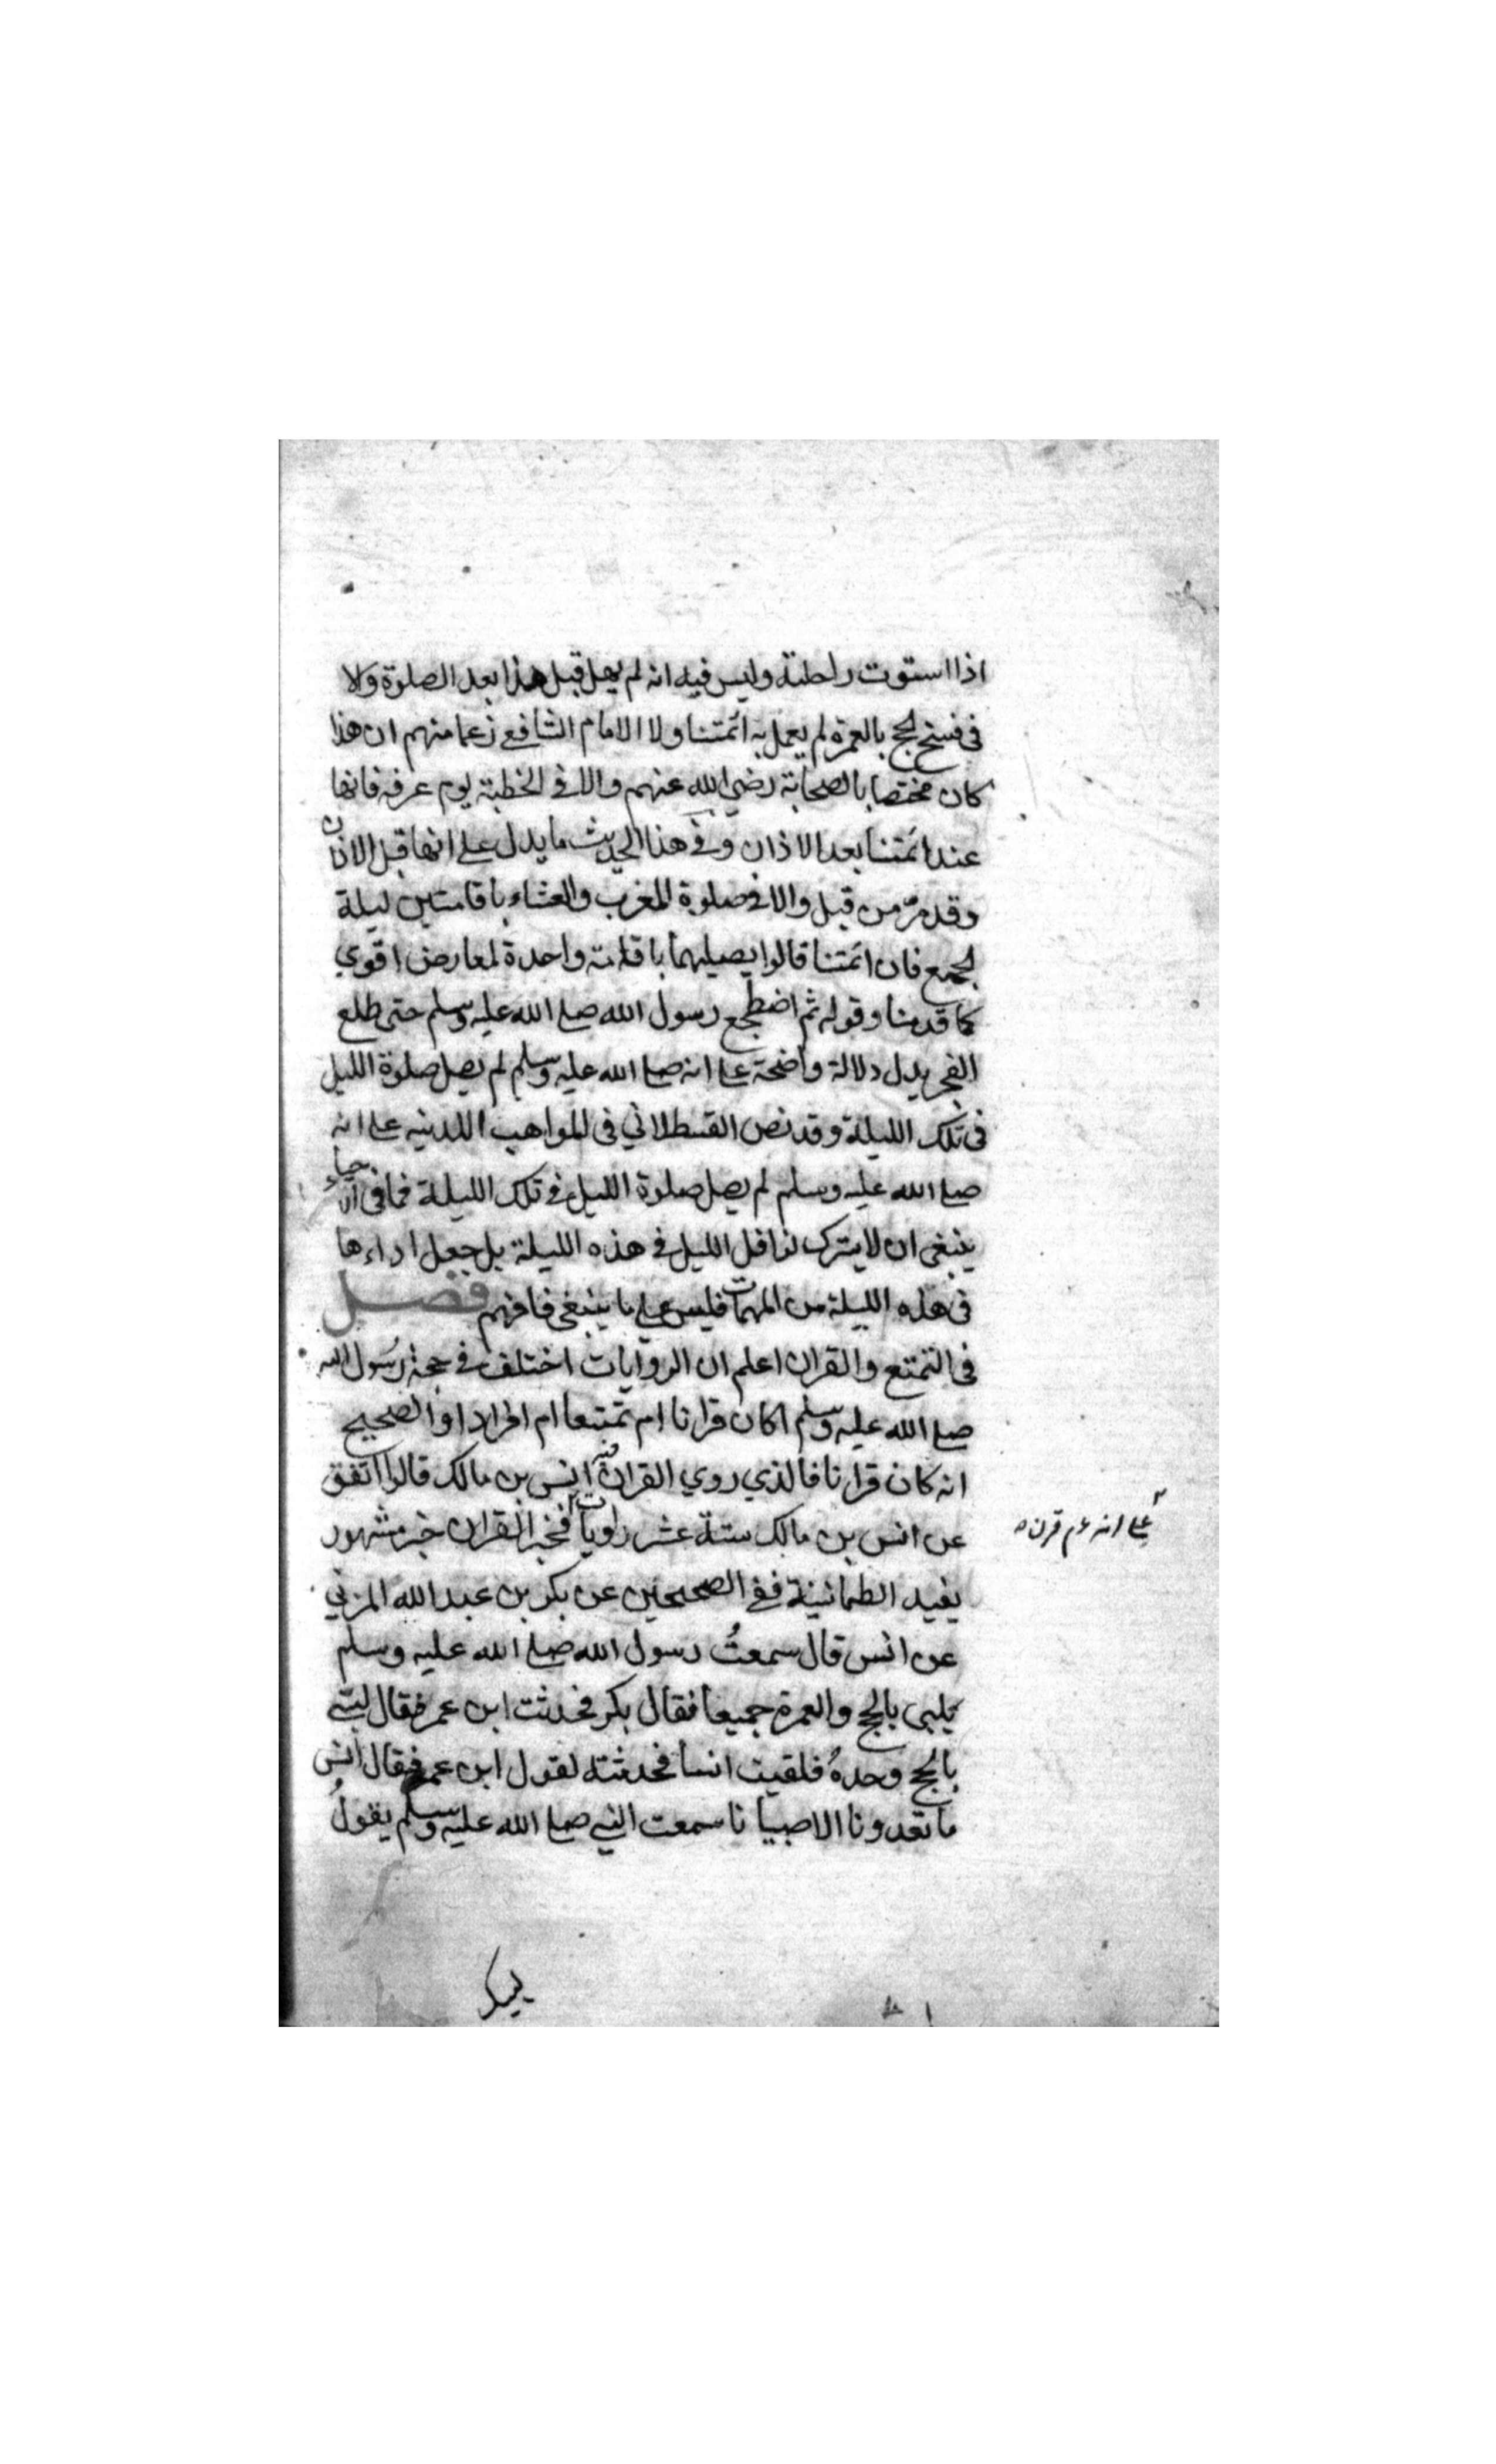 اذا استوت راحلته وليس فيه انه لم يهل قبل هذا بعد الصلوة ولا
فى فسخ الحج بالعمرة لم يعمل به ائمتنا ولا الامام الشافعي زعما منهم ان هذا
كان مختصا بالصحابة رضي الله عنهم والا فى الخطبة يوم عرفه فانها
عند ائمتنا بعد الاذان وفى هذا الحديث ما يدل على انها قبل الاذان
وقد مرّ من قبل والا فى صلوة المغرب والعشاء باقامتين ليلة
لجمع فان ائمتنا قالوا يصليهما باقامة واحدة لمعارض اقوي
كما قدمنا وقوله ثم اضطجع رسول الله صلى الله عليه وسلم حتى طلع
الفجر يدل دلالة واضحة على انه صلى الله عليه وسلم لم يصل صلوة الليل
فى تلك الليلة وقد نص القسطلاني فى المواهب اللدنيه على انه
صلى الله عليه وسلم لم يصل صلوة الليل فى تلك الليلة فما فى الاحياء
ينبغى ان لا يترك نوافل الليل فى هذه الليلة بل جعل اداءها
فى هذه الليلة من المهمات فليس على ما ينبغى فافهم فصل
فى التمتع والقران اعلم ان الروايات اختلف فى حجة رسول الله
صلى الله عليه وسلم اكان قرانا ام تمتعا ام افرادا والصحيح
انه كان قرانا فالذي روي القران منه انس بن مالك قالوا اتفق
عن انس بن مالك ستة عشر راويا فخبر القران خبر مشهور
على انه عم قرن ه
يفيد الطمانينة ففى الصحيحين عن بكر بن عبد الله المزني
عن انس قال سمعتُ رسول الله صلى الله عليه وسلم
يلبى بالحج والعمرة جميعا فقال بكر فحدثت ابن عمر فقال لبّى
بالحج وحدهُ فلقيت انسا فحدثته لقول ابن عمر فقال انس
ما تعدونا الا صبيانا سمعت النبي صلى الله عليه وسلم يقولُ
لبيك